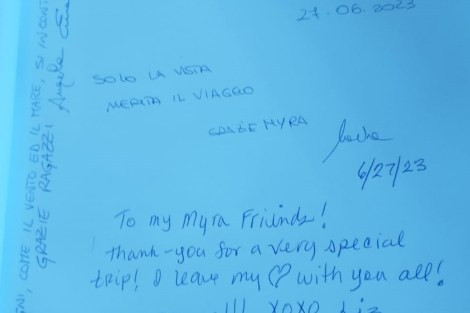 27.06.2023
SOLO LA VISTA
MERITA IL VIAGGIO
GRAZIE MYRA
6/27/23
To my Myra Friends!
Thank-you for a very special
trip! I leave my ♡ with you all!
!!! XOXO Liz
COME IL VENTO ED IL MARE, SI
GRAZIE RAGAZZI Angela